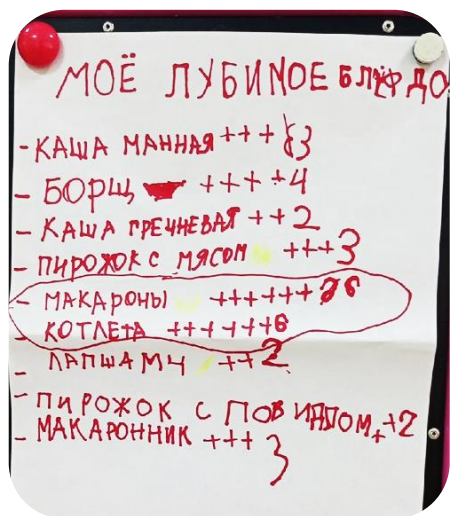 МОЁ ЛУБИМОЕ БЛЮДО
- КАША МАННАЯ +++ 3
- БОРЩ ++++4
- КАША ГРЕЧНЕВАЯ ++2
- ПИРОЖОК С МЯСОМ +++3
- МАКАРОНЫ ++++++ 6
- КОТЛЕТА ++++++6
- ЛАПША МЧ ++2
- ПИРОЖОК С ПОВИДЛОМ ++2
- МАКАРОННИК +++3